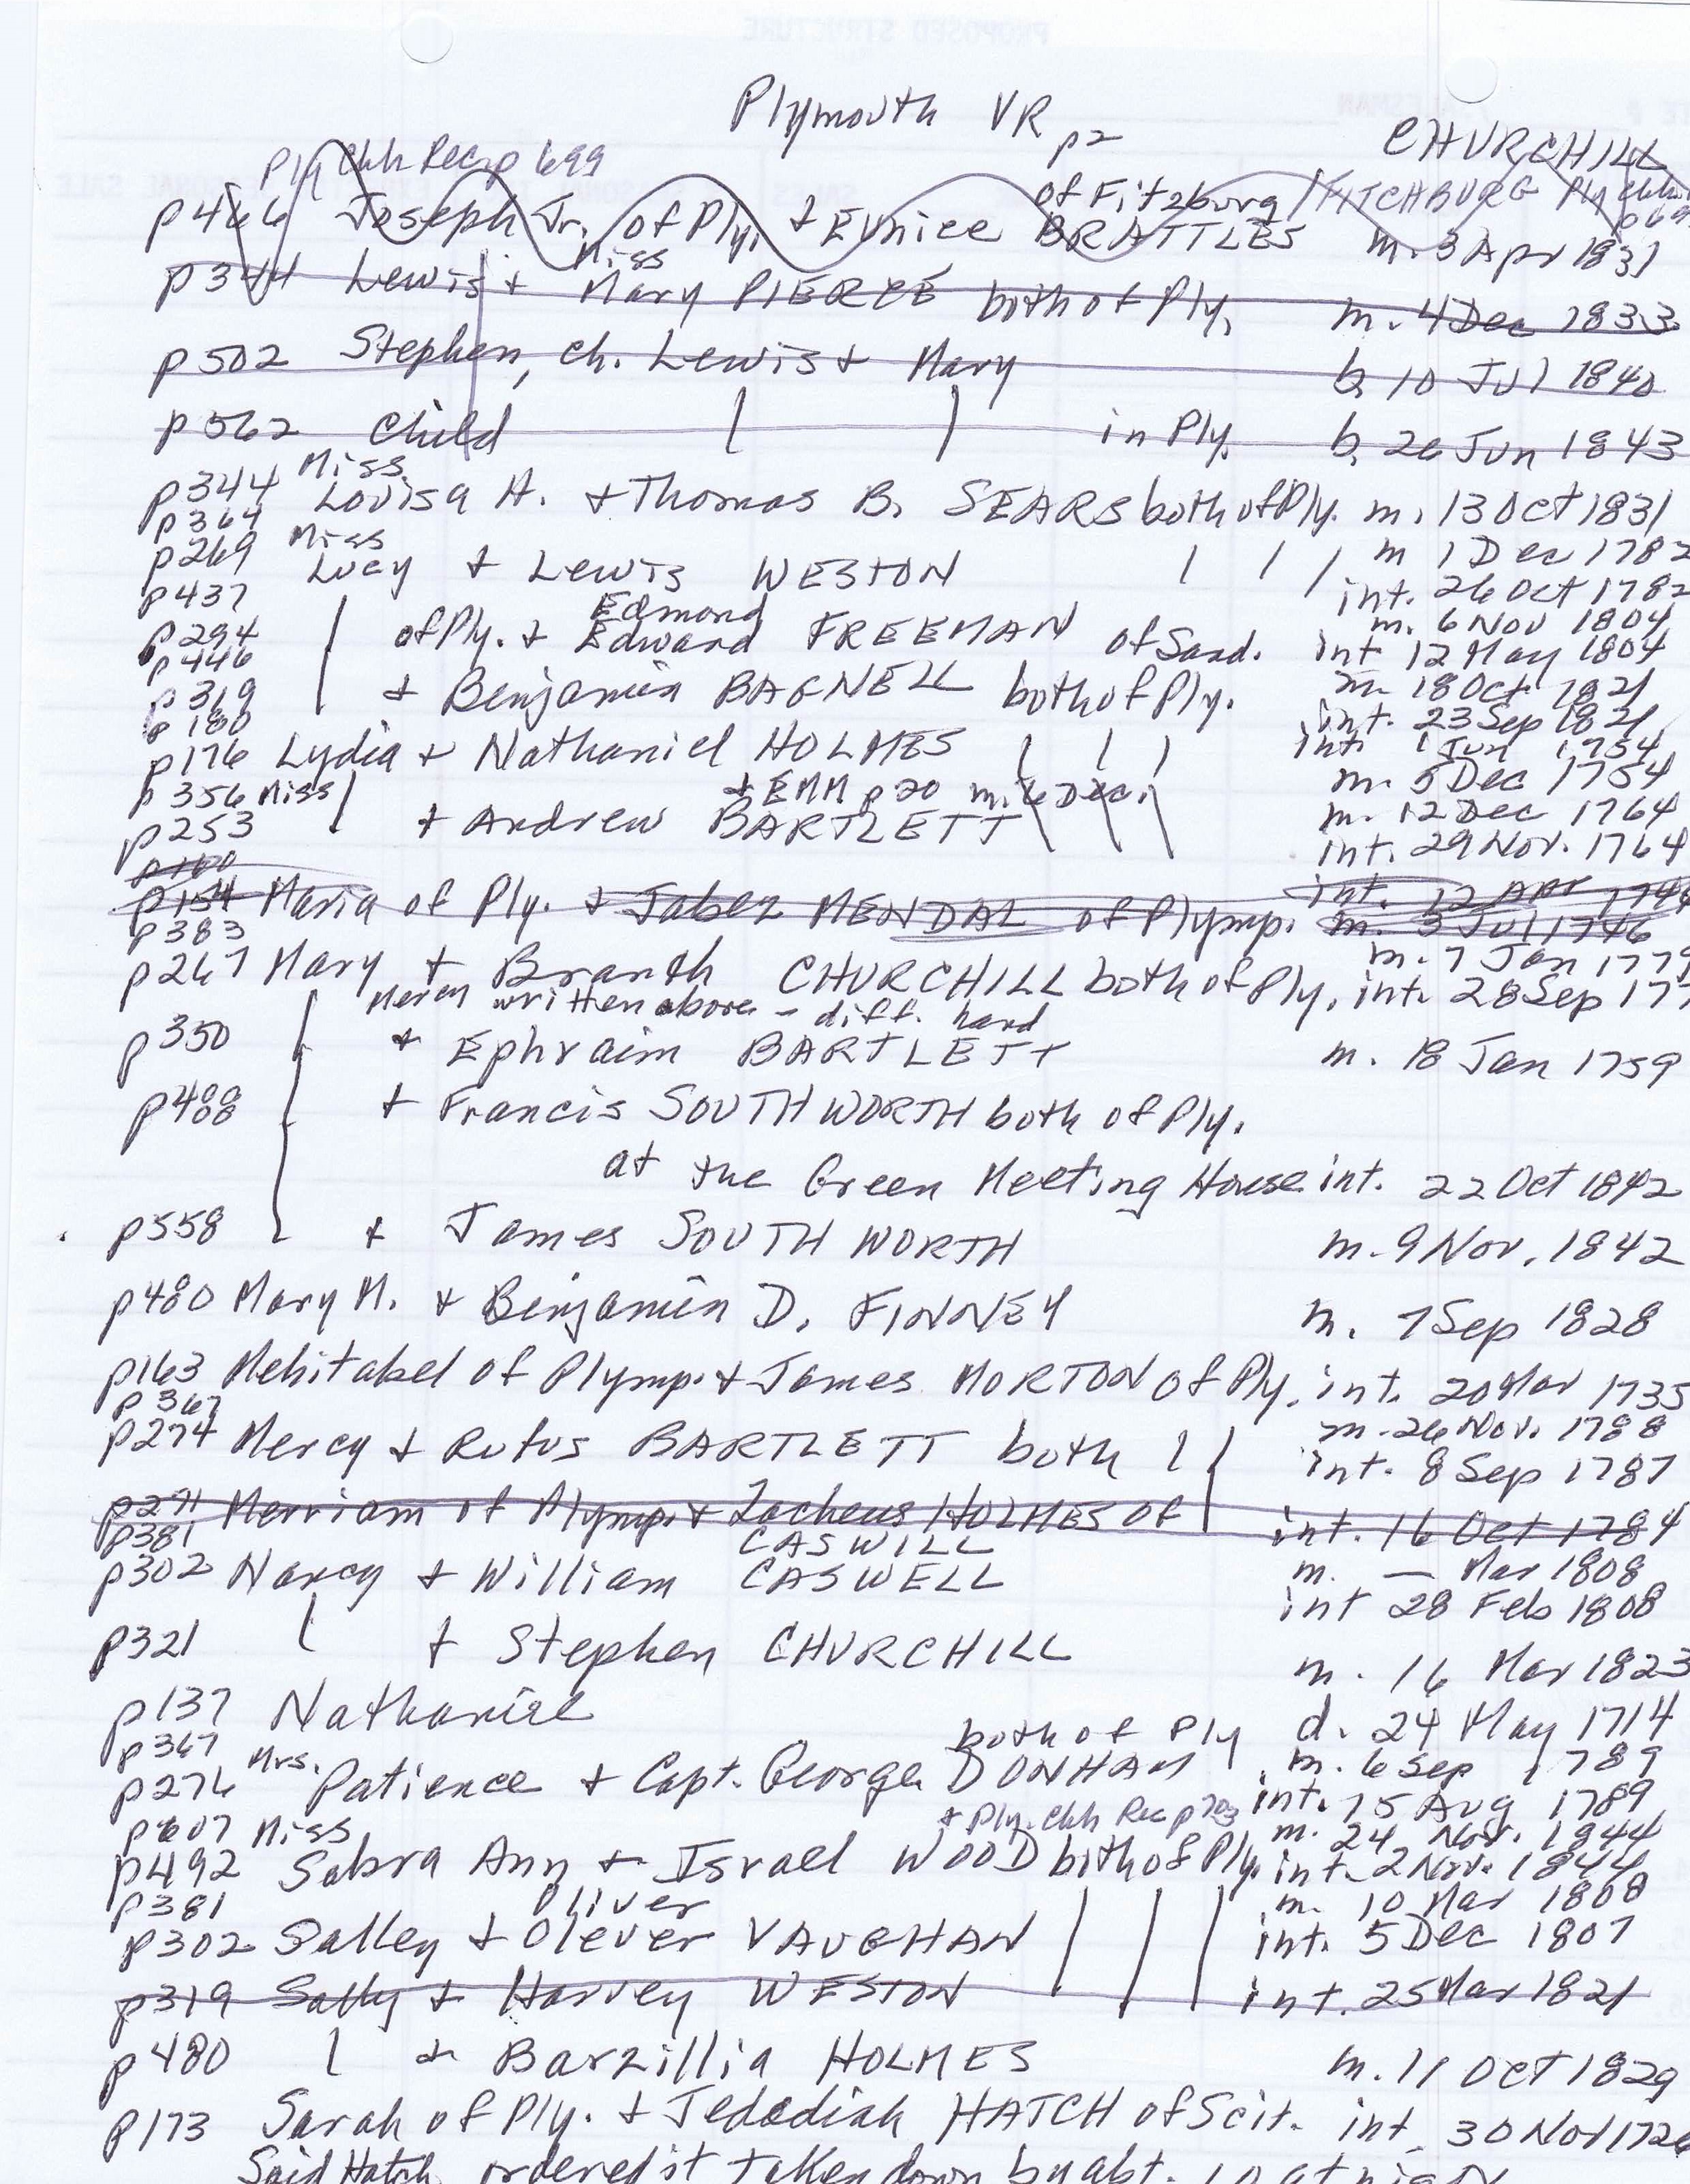 Plymouth VR
p2
CHURCHILL
Ply Chh Rec p 699
of Fitzburg / FITCHBURG Ply Chh
p 69
p466 Joseph Jr. of Ply. + Eunice BRATTLES m. 3 Apr 1831
Miss
p344 Lewis + Mary PIERCE both of Ply. m. 4 Dec 1833
p502 Stephen, ch. Lewis + Mary b. 10 Jul 1840
p562 Child | | in Ply. b. 26 Jun 1843
Miss
p344 Louisa A. + Thomas B. SEARS both of Ply. m. 13 Oct 1831
p364 Miss m 1 Dec 1782
p269 Lucy + Lewis WESTON | | | int. 26 Oct 1782
p437 Edmond m. 6 Nov 1804
p294 | of Ply. + Edward FREEMAN of Sand. int 12 May 1804
p446 m. 18 Oct 1821
p319 | + Benjamin BAGNELL both of Ply. int. 23 Sep 1821
p180 int. 1 Jun 1754
p176 Lydia + Nathaniel HOLMES | | | m. 5 Dec 1754
p356 Miss | + EMM p20 m. 6 Dec. m. 12 Dec 1764
p253 + Andrew BARTLETT | | | int. 29 Nov. 1764
p160 int. 12 Apr 1746
p154 Maria of Ply. + Jabez MENDAL of Plymp. m. 3 Jul 1746
p383 m. 7 Jan 1779
p267 Mary + Branch CHURCHILL both of Ply, int. 28 Sep 177
Mercy written above - diff. hand
p350 + Ephraim BARTLETT m. 18 Jan 1759
p488 + Francis SOUTHWORTH both of Ply.
at the Green Meeting House int. 22 Oct 1842
p558 + James SOUTHWORTH m. 9 Nov. 1842
p480 Mary M. + Benjamin D. FINNEY m. 7 Sep 1828
p163 Mehitabel of Plymp. + James MORTON of Ply. int. 20 Mar 1735
p367 m. 26 Nov. 1788
p274 Mercy + Rufus BARTLETT both | | int. 8 Sep 1787
p271 Merriam of Plymp. + Zacheus HOLMES of | int. 16 Oct 1784
p381 CASWILL m. — Mar 1808
p302 Nancy + William CASWELL int 28 Feb 1808
p321 | + Stephen CHURCHILL m. 16 Mar 1823
p137 Nathaniel d. 24 May 1714
p367 Mrs. both of Ply m. 6 Sep 1789
p276 Patience + Capt. George DONHAM int. 15 Aug 1789
p607 Miss + Ply. Chh Rec p703 m. 24 Nov. 1844
p492 Sabra Ann + Israel WOOD both of Ply. int. 2 Nov. 1844
p381 Oliver m. 10 Mar 1808
p302 Salley + Olever VAUGHAN | | | int. 5 Dec 1807
p319 Sally + Harvey WESTON int. 25 Mar 1821
p480 | + Barzillia HOLMES m. 11 Oct 1829
p173 Sarah of Ply. + Jedediah HATCH of Scit. int. 30 Nov 1726
Said Hatch ordered it taken down by abt. 10 at night